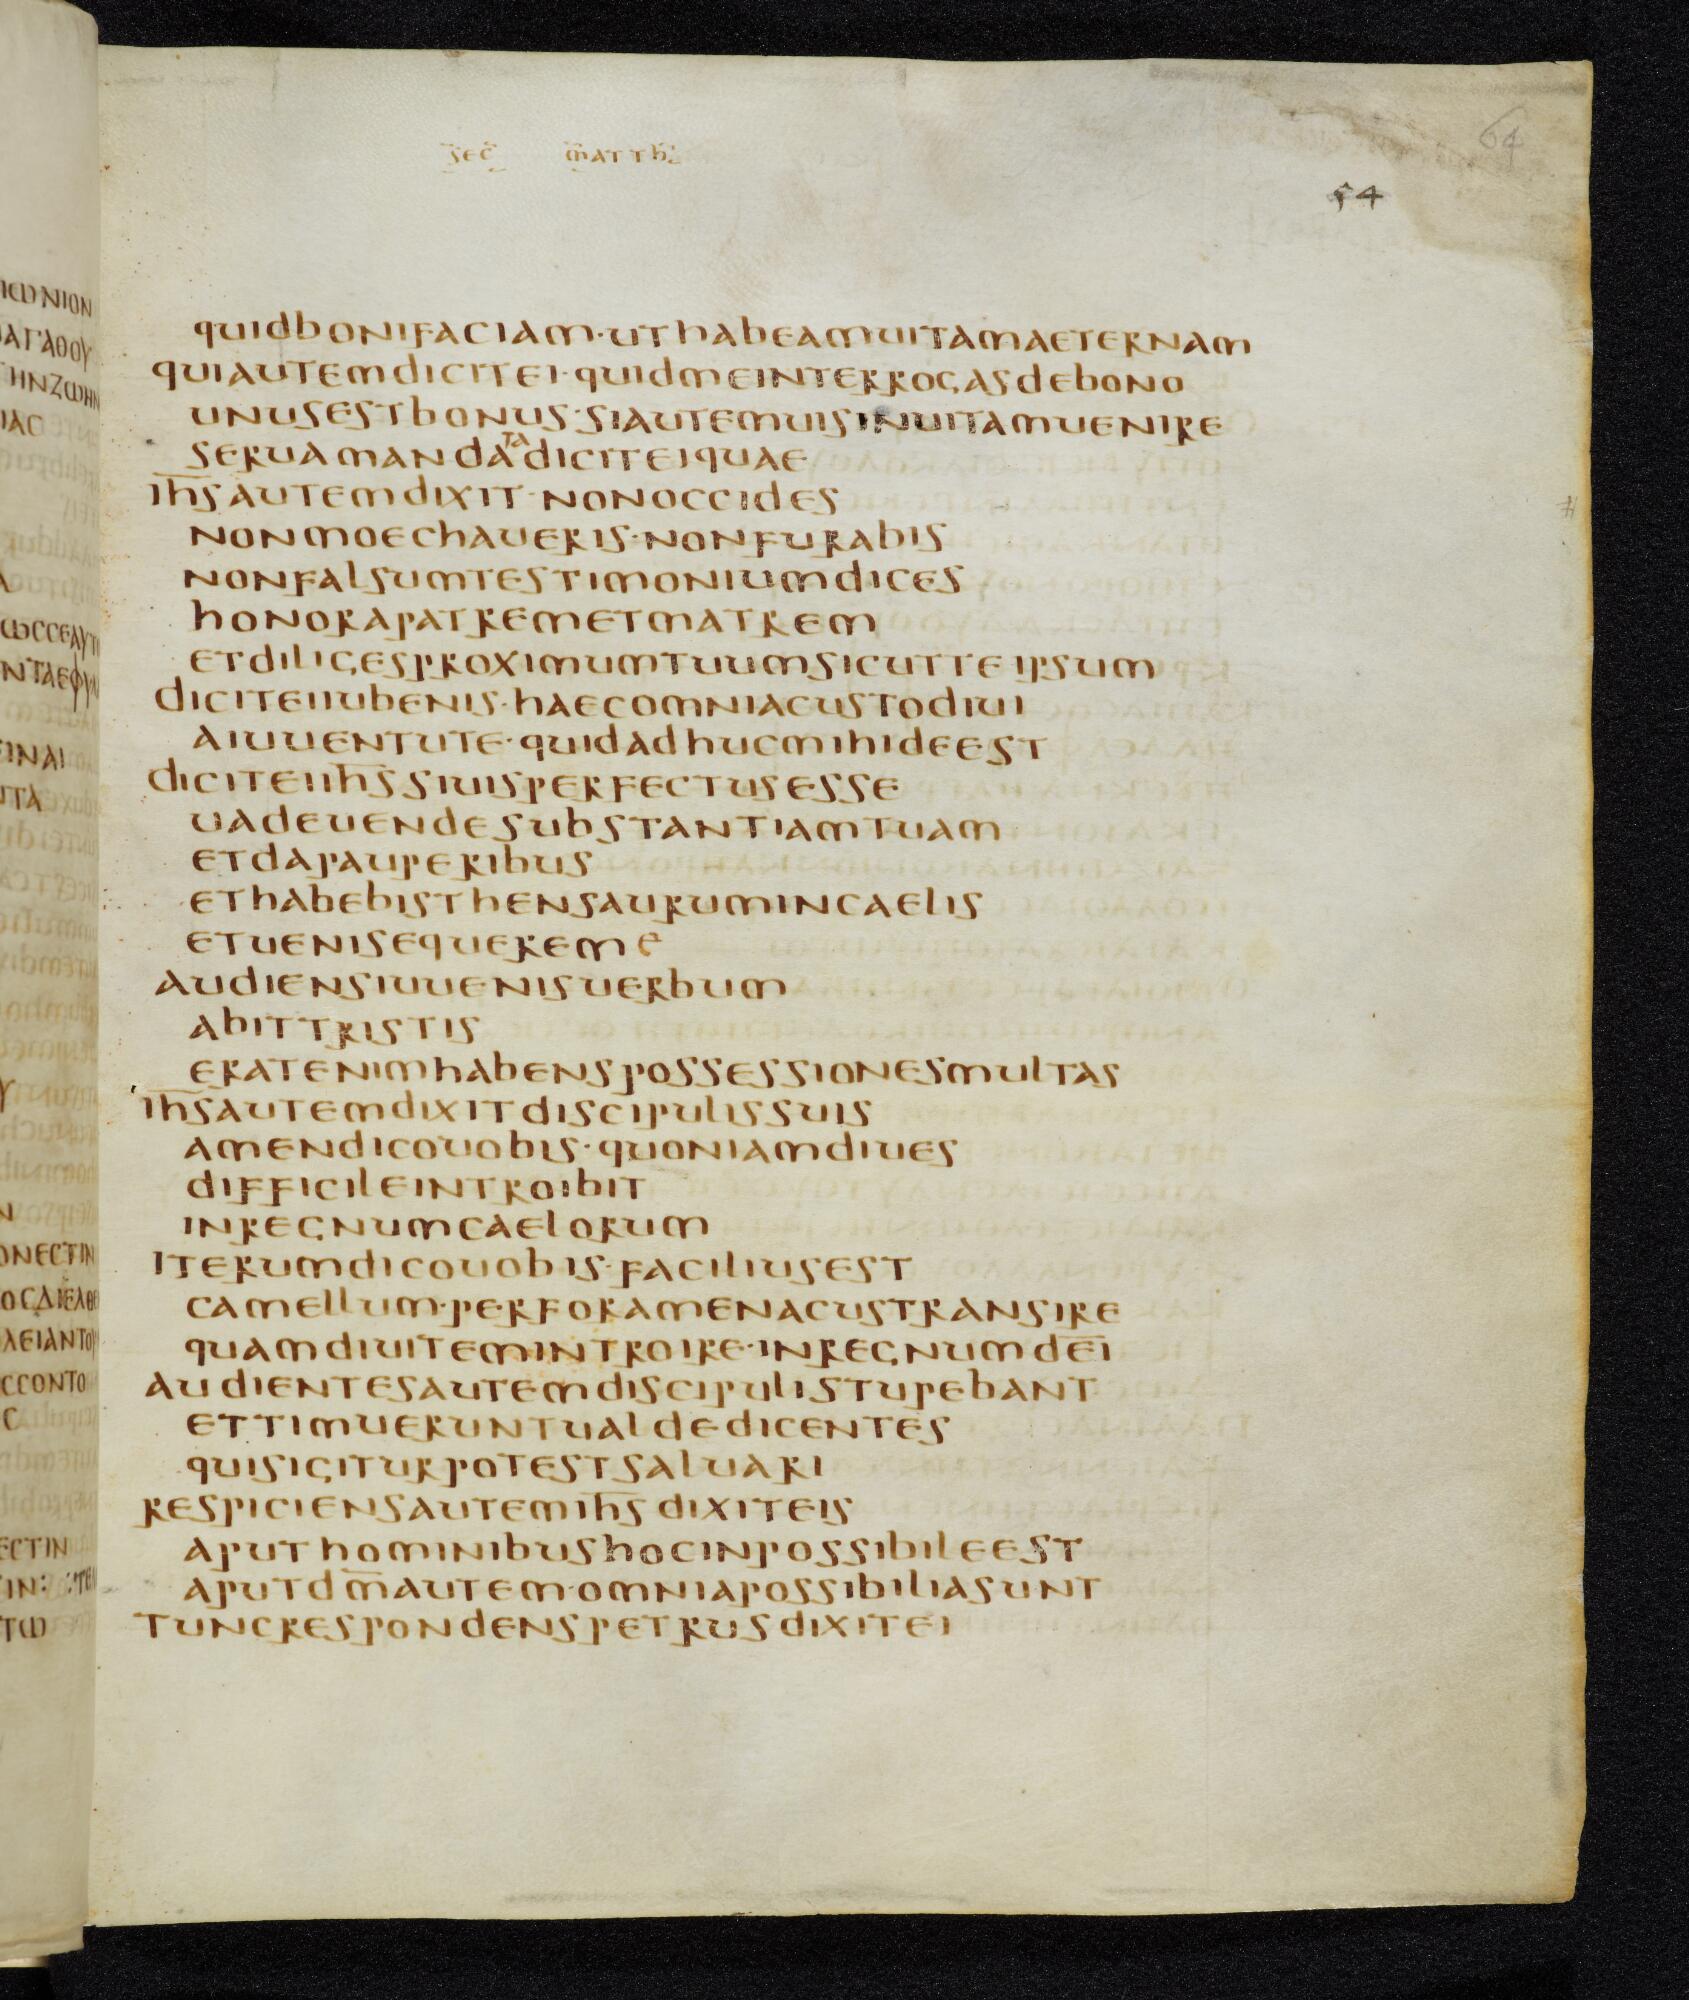 sec matth
64
54
quidbonifaciam·uthabeamuitamaeternam
quiautemdicitei·quidmeinterrogasdebono
unusestbonus·siautemuisinuitamuenire
seruamandatadiciteiquae
ihsautemdixit·nonoccides
nonmoechaueris·nonfurabis
nonfalsumtestimoniumdices
honorapatremetmatrem
etdiligesproximumtuumsicutteipsum
diciteiiubenis·haecomniacustodiui
aiuuentute·quidadhucmihideest
diciteiihssiuisperfectusesse
uadeuendesubstantiamtuam
etdapauperibus
ethabebisthensaurumincaelis
etuenisequereme
audiensiuuenisuerbum
abittristis
eratenimhabenspossessionesmultas
ihsautemdixitdiscipulissuis
amendicouobis·quoniamdiues
difficileintroibit
inregnumcaelorum
iterumdicouobis·faciliusest
camellum·perforamenacustransire
quamdiuitemintroire·inregnumdei
audientesautemdiscipulistupebant
ettimueruntualdedicentes
quisigiturpotestsaluari
respiciensautemihsdixiteis
aputhominibushocinpossibileest
aputdmautem·omniapossibiliasunt
tuncrespondenspetrusdixitei